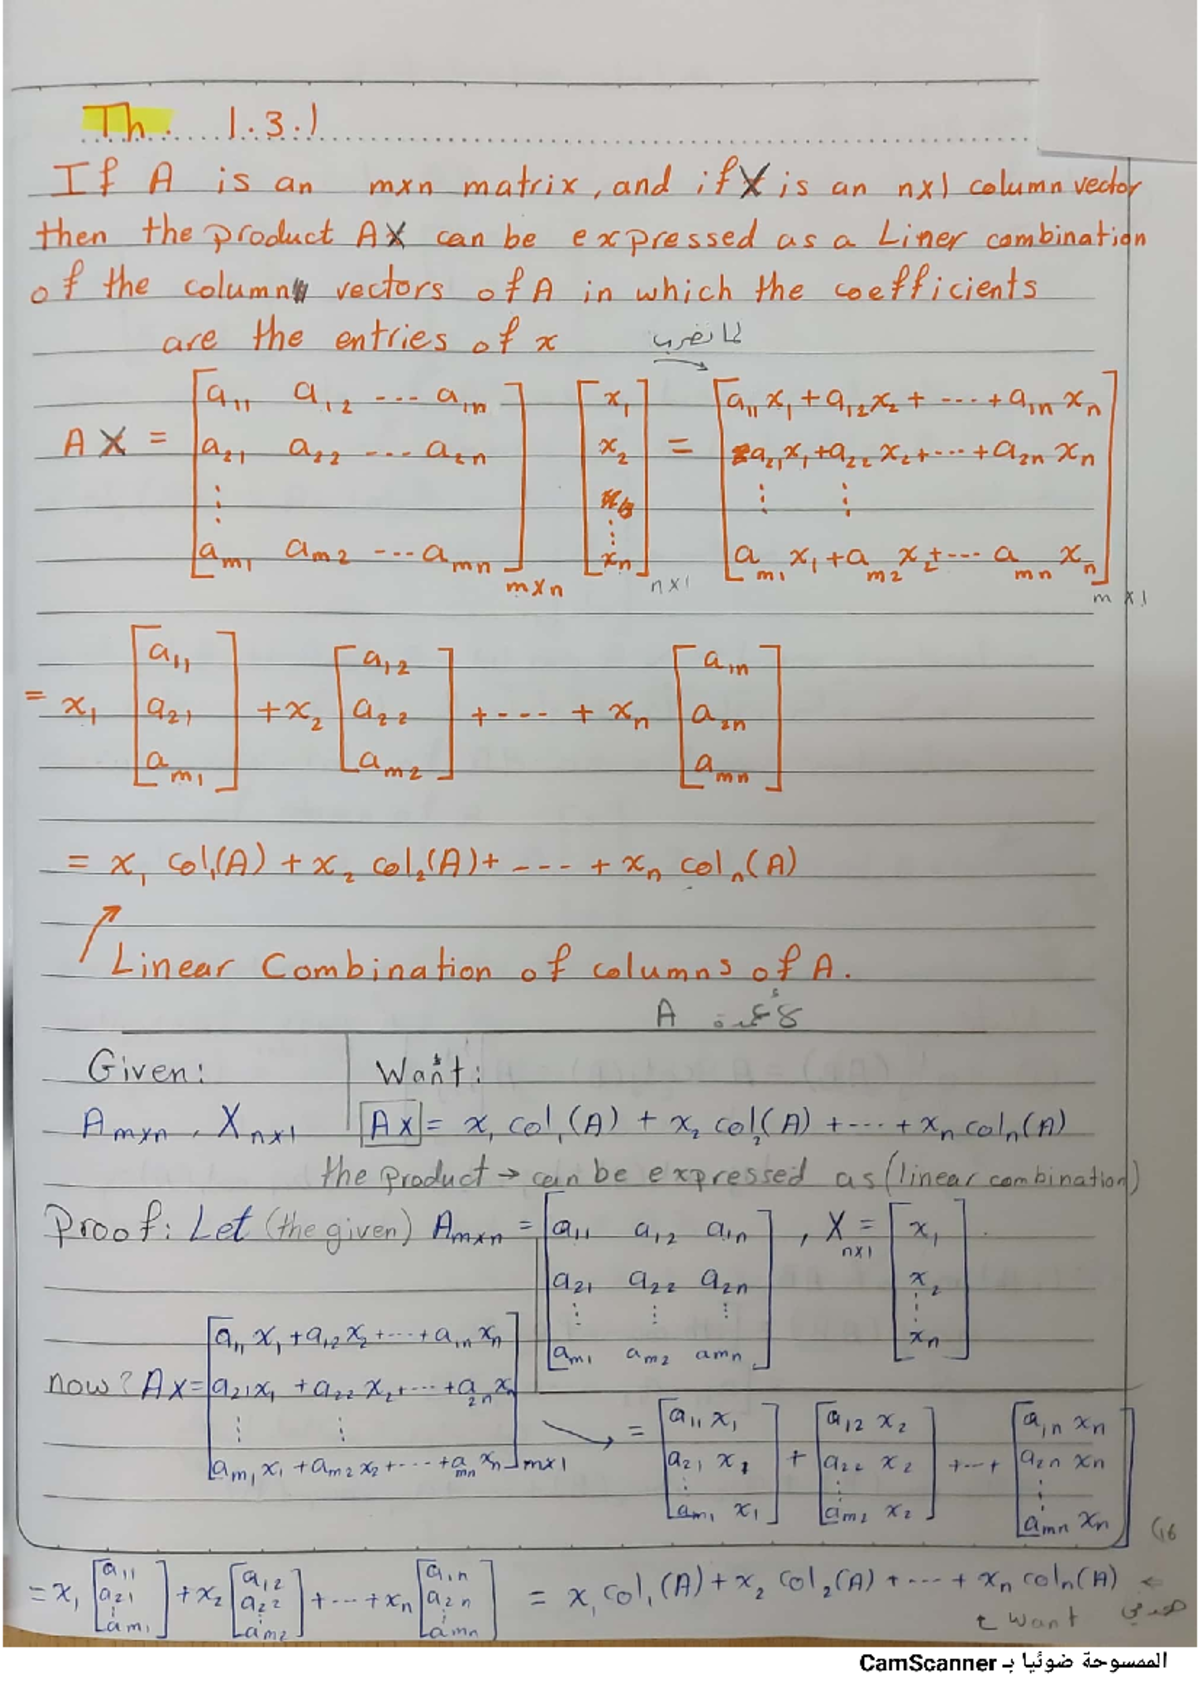 Th. 1.3.1
If A is an m×n matrix, and if X is an n×1 column vector
then the product AX can be expressed as a Liner combination
of the column vectors of A in which the coefficients
are the entries of x لما نضرب
AX = [a₁₁ a₁₂ --- a₁ₙ; a₂₁ a₂₂ --- a₂ₙ; ⋮ aₘ₁ aₘ₂ --- aₘₙ]m×n [x₁; x₂; ⋮ xₙ]n×1 = [a₁₁x₁ + a₁₂x₂ + --- + a₁ₙxₙ; a₂₁x₁ + a₂₂x₂ + --- + a₂ₙxₙ; ⋮ ⋮ aₘ₁x₁ + aₘ₂x₂ + --- aₘₙxₙ]m×1
= x₁ [a₁₁; a₂₁; aₘ₁] + x₂ [a₁₂; a₂₂; aₘ₂] + ---- + xₙ [a₁ₙ; a₂ₙ; aₘₙ]
= x₁ col₁(A) + x₂ col₂(A) + ---- + xₙ colₙ(A)
Linear Combination of columns of A.
أعمدة A
Given: Want:
Am×n , Xn×1 AX = x₁ col₁(A) + x₂ col₂(A) + --- + xₙ colₙ(A)
the product → can be expressed as (linear combination)
Proof: Let (the given) Am×n = [a₁₁ a₁₂ a₁ₙ; a₂₁ a₂₂ a₂ₙ; ⋮ ⋮ ⋮ aₘ₁ aₘ₂ aₘₙ] , Xn×1 = [x₁; x₂; ⋮ xₙ]
now? AX = [a₁₁x₁ + a₁₂x₂ + --- + a₁ₙxₙ; a₂₁x₁ + a₂₂x₂ + --- + a₂ₙxₙ; ⋮ ⋮ aₘ₁x₁ + aₘ₂x₂ + --- + aₘₙxₙ]m×1
= [a₁₁x₁; a₂₁x₁; ⋮ aₘ₁x₁] + [a₁₂x₂; a₂₂x₂; ⋮ aₘ₂x₂] + --- + [a₁ₙxₙ; a₂ₙxₙ; ⋮ aₘₙxₙ]
= x₁ [a₁₁; a₂₁; ⋮ aₘ₁] + x₂ [a₁₂; a₂₂; ⋮ aₘ₂] + --- + xₙ [a₁ₙ; a₂ₙ; ⋮ aₘₙ] = x₁ col₁(A) + x₂ col₂(A) + --- + xₙ colₙ(A) ←
want
الممسوحة ضوئيا بـ CamScanner